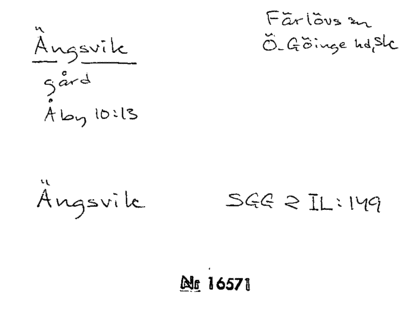 Ängsvik
gård
Åby 10:13
Färlövs sn
Ö. Göinge hd, Sk
Ängsvik
SGG 2 IL:149
Nr 16571